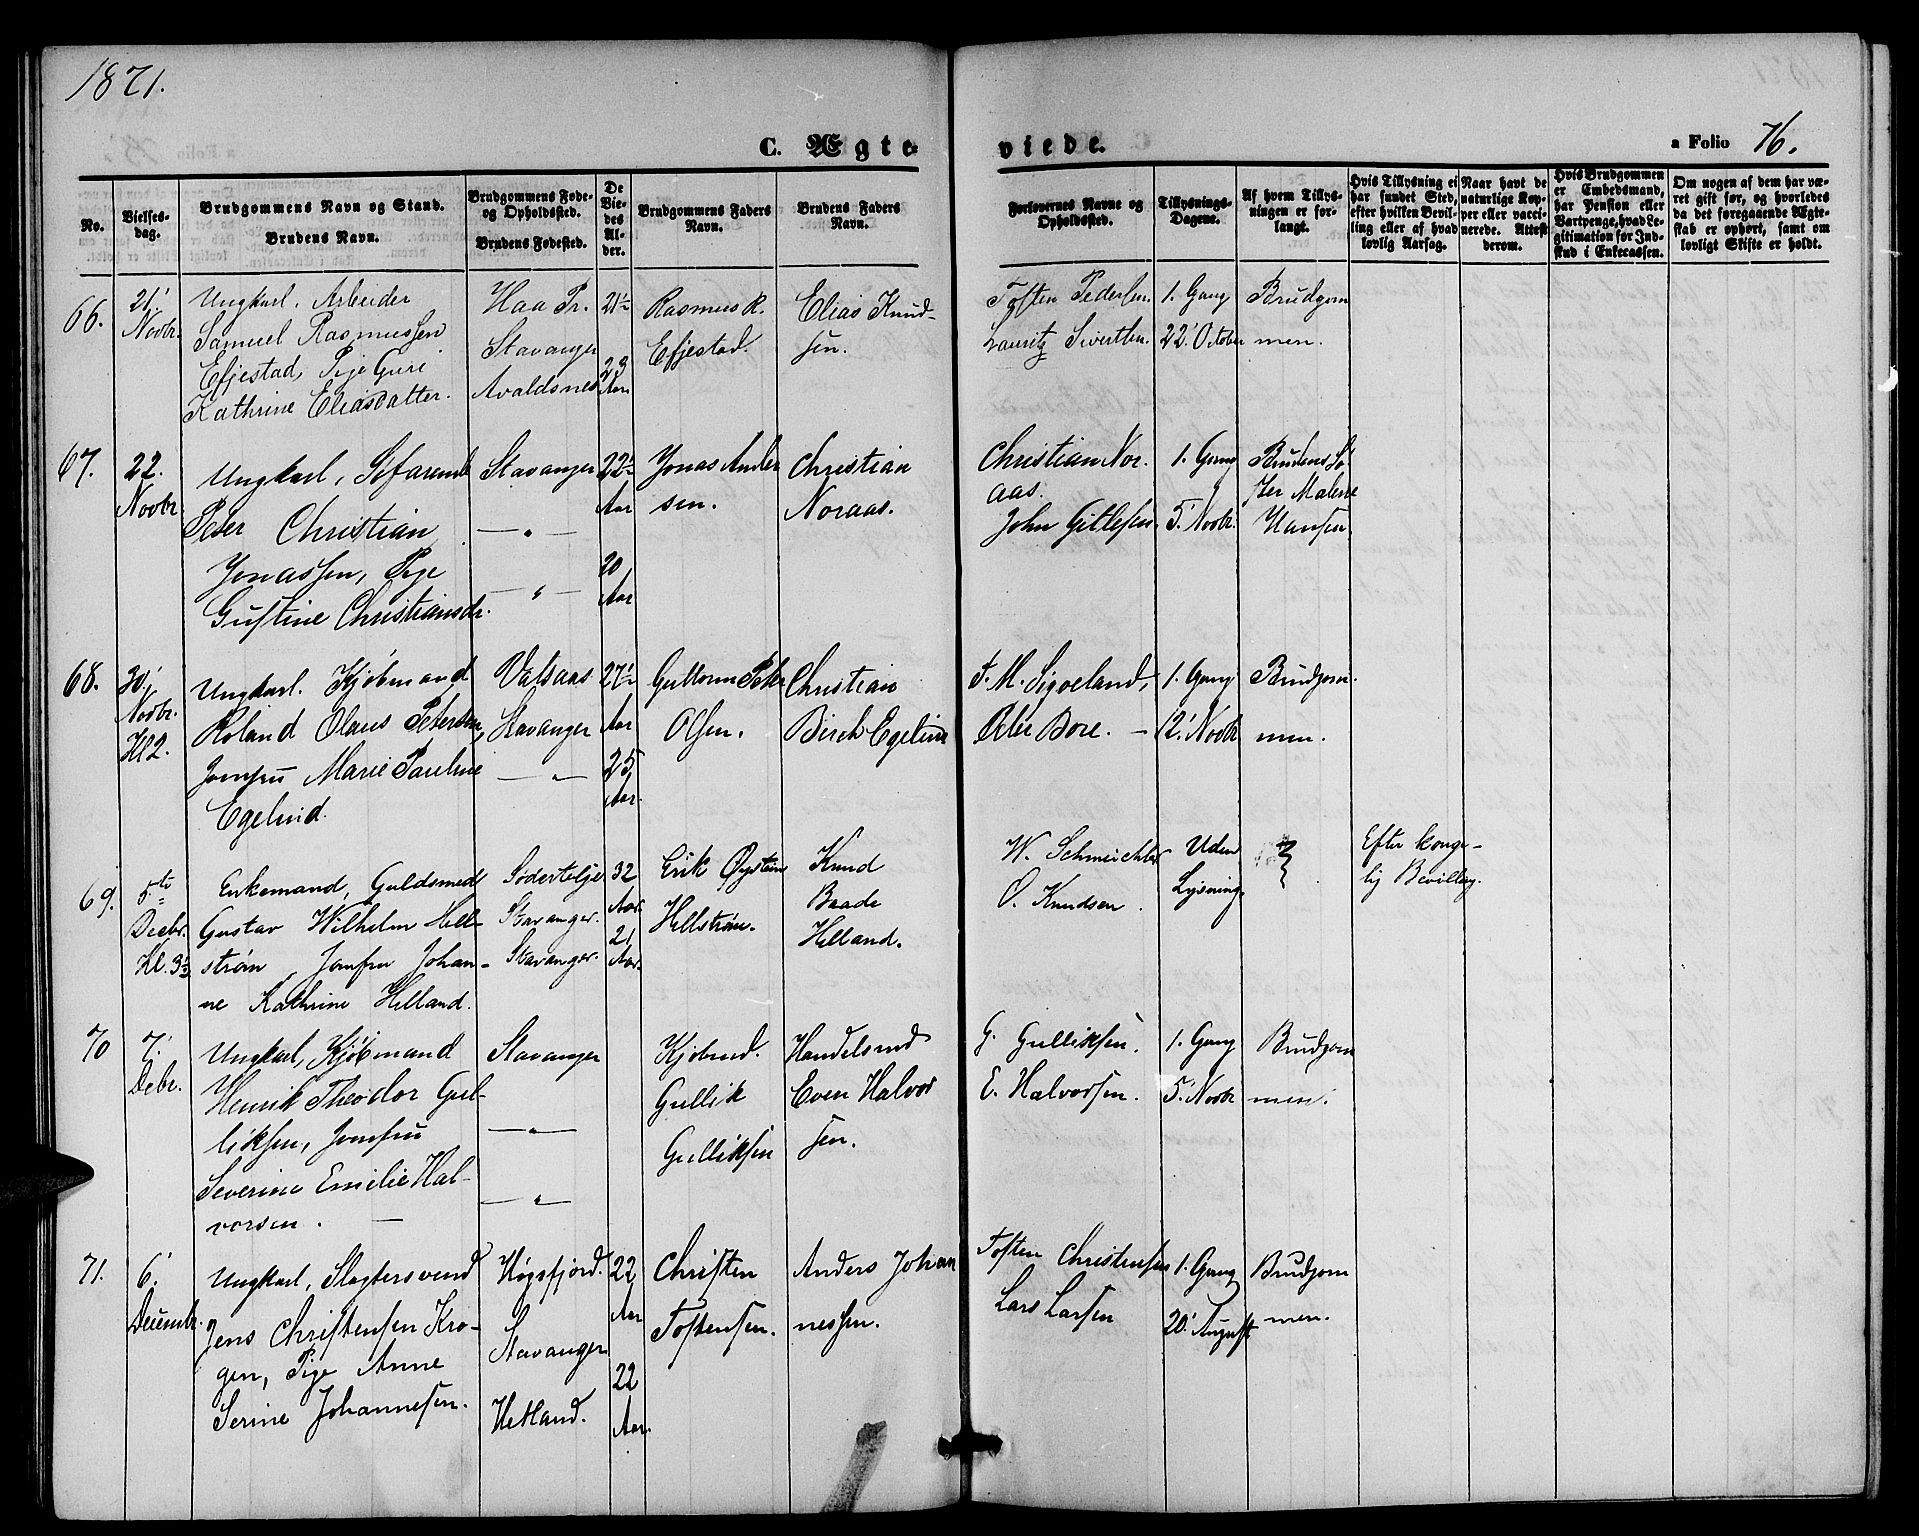 1871.
C. Ægte-
viede.
a Folio 76.
No.
Vielses-
dag.
Brudgommens Navn og Stand.
Brudens Navn.
Brudgommens Føde-
og Opholdssted.
Brudens Fødested.
De
Vie-
des
Al-
der.
Brudgommens Faders
Navn.
Brudens Faders
Navn.
Forlovernes Navne og
Opholdssted.
Tillysnings-
Dagene.
Af hvem Tillys-
ningen er for-
langt.
Hvis Tillysning ei
har fundet Sted,
efter hvilken Bevil-
ling eller af hvad
lovlig Aarsag.
Naar havt de
naturlige Kop-
per eller vacci-
nerede. Attest
derom.
Hvis Brudgommen
er Embedsmand,
har Pension eller
Vartpenge, hvad Le-
gitimation for Ind-
skud i Enkecassen.
Om nogen af dem har væ-
ret gift før, og hvorledes
da det foregaaende Ægte-
skab er ophørt, samt om
lovligt Skifte er holdt.
66.
21'
Novbr.
Ungkarl. Arbeider
Samuel Rasmussen
Efjestad, Pige Guri
Kathrine Eliasdatter.
Haa Pr.
Stavanger
Avaldsnes
21½
23
Aar
Rasmus R.
Efjestad.
Elias Knud-
sen.
Tosten Pedersen.
Lauritz Sivertsen.
1. Gang
22' October
Brudgom
men.
67.
22.
Novbr.
Ungkarl, Sofarende
Peter Christian
Jonassen, Pige
Gustine Christiansdr.
Stavanger
— " —
— " —
22½
Aar
20
Aar
Jonas Ander
sen.
Christian
Noraas.
Christian Nor.
aas.
John Gitlesen.
1. Gang
5' Novbr.
Brudens Sø-
ster Malene
Hansen.
68.
30'
Novbr.
Kl 2.
Ungkarl. Kjøbmand
Roland Olaus Petersen,
Jomfru Marie Pauline
Egelund.
Valsaas
Stavanger
— " —
27½
Aar
25
Aar.
Guttorm Peter
Olsen.
Christian
Birch Egelund
T. M. Sigveland,
Peter Bore. —
1. Gang
12' Novbr
Brudgom-
men.
69.
5te
Decbr.
Kl. 3½
Enkemand, Guldsmed
Gustav Wilhelm Hell-
strøm, Jomfru Johan-
ne Kathrine Helland.
Södertelje
Stavanger.
Stavanger.
32
Aar.
21
Aar.
Erik Øystein
Hellstrøm.
Knud
Baade
Helland.
O. Knudsen.
Uden
Lysning.
Efter konge-
lig Bevilling.
70
7.'
Debr.
Ungkarl, Kjøbmand
Henrik Theodor Gul-
liksen, Jomfru
Severine Emilie Hal-
vorsen. —
Stavanger
— " —
— " —
Kjøbmd.
Gullik
Gulliksen
Handelsmd
Even Halvor
sen.
G. Gulliksen.
E. Halvorsen.
1. Gang
5' Novbr
Brudgom
men.
71.
6.'
Decembr.
Ungkarl, Slagtersvend
Jens Christensen Kro-
gen, Pige Anne
Serine Johannesen.
Høgsfjord.
Stavanger
Hetland.
22
Aar
22
Aar.
Christen
Tostensen.
Anders Johan
nessen.
Tosten Christensen
Lars Larsen
1. Gang
20' August
Brudgom
men.